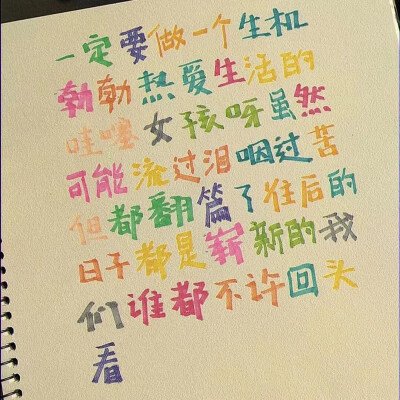 一定要做一个生机
勃勃热爱生活的
哇噻女孩呀虽然
可能流过泪咽过苦
但都翻篇了往后的
日子都是崭新的我
们谁都不许回头
看